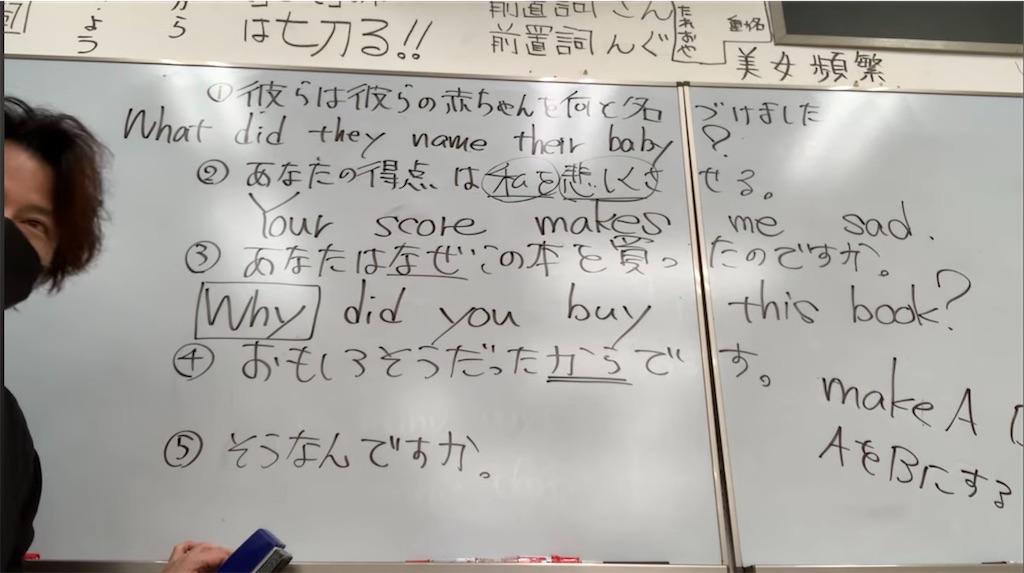 から
よう
は七刀る!!
前置詞さん
前置詞んぐ
美女頻繁
①彼らは彼らの赤ちゃんを何と名づけました
What did they name their baby?
②あなたの得点は私を悲しくさせる。
Your score makes me sad.
③あなたはなぜこの本を買ったのですか。
Why did you buy this book?
④おもしろそうだったからです。
⑤そうなんですか。
make A
AをBにする